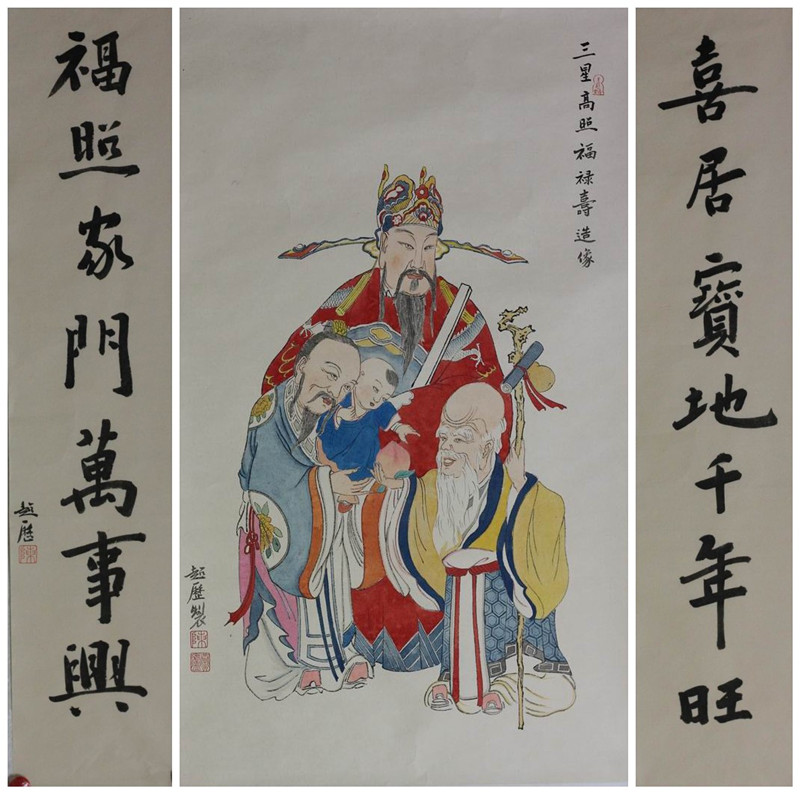 喜居寶地千年旺
三星高照福禄壽造像
趙曆製
福照家門萬事興
趙曆